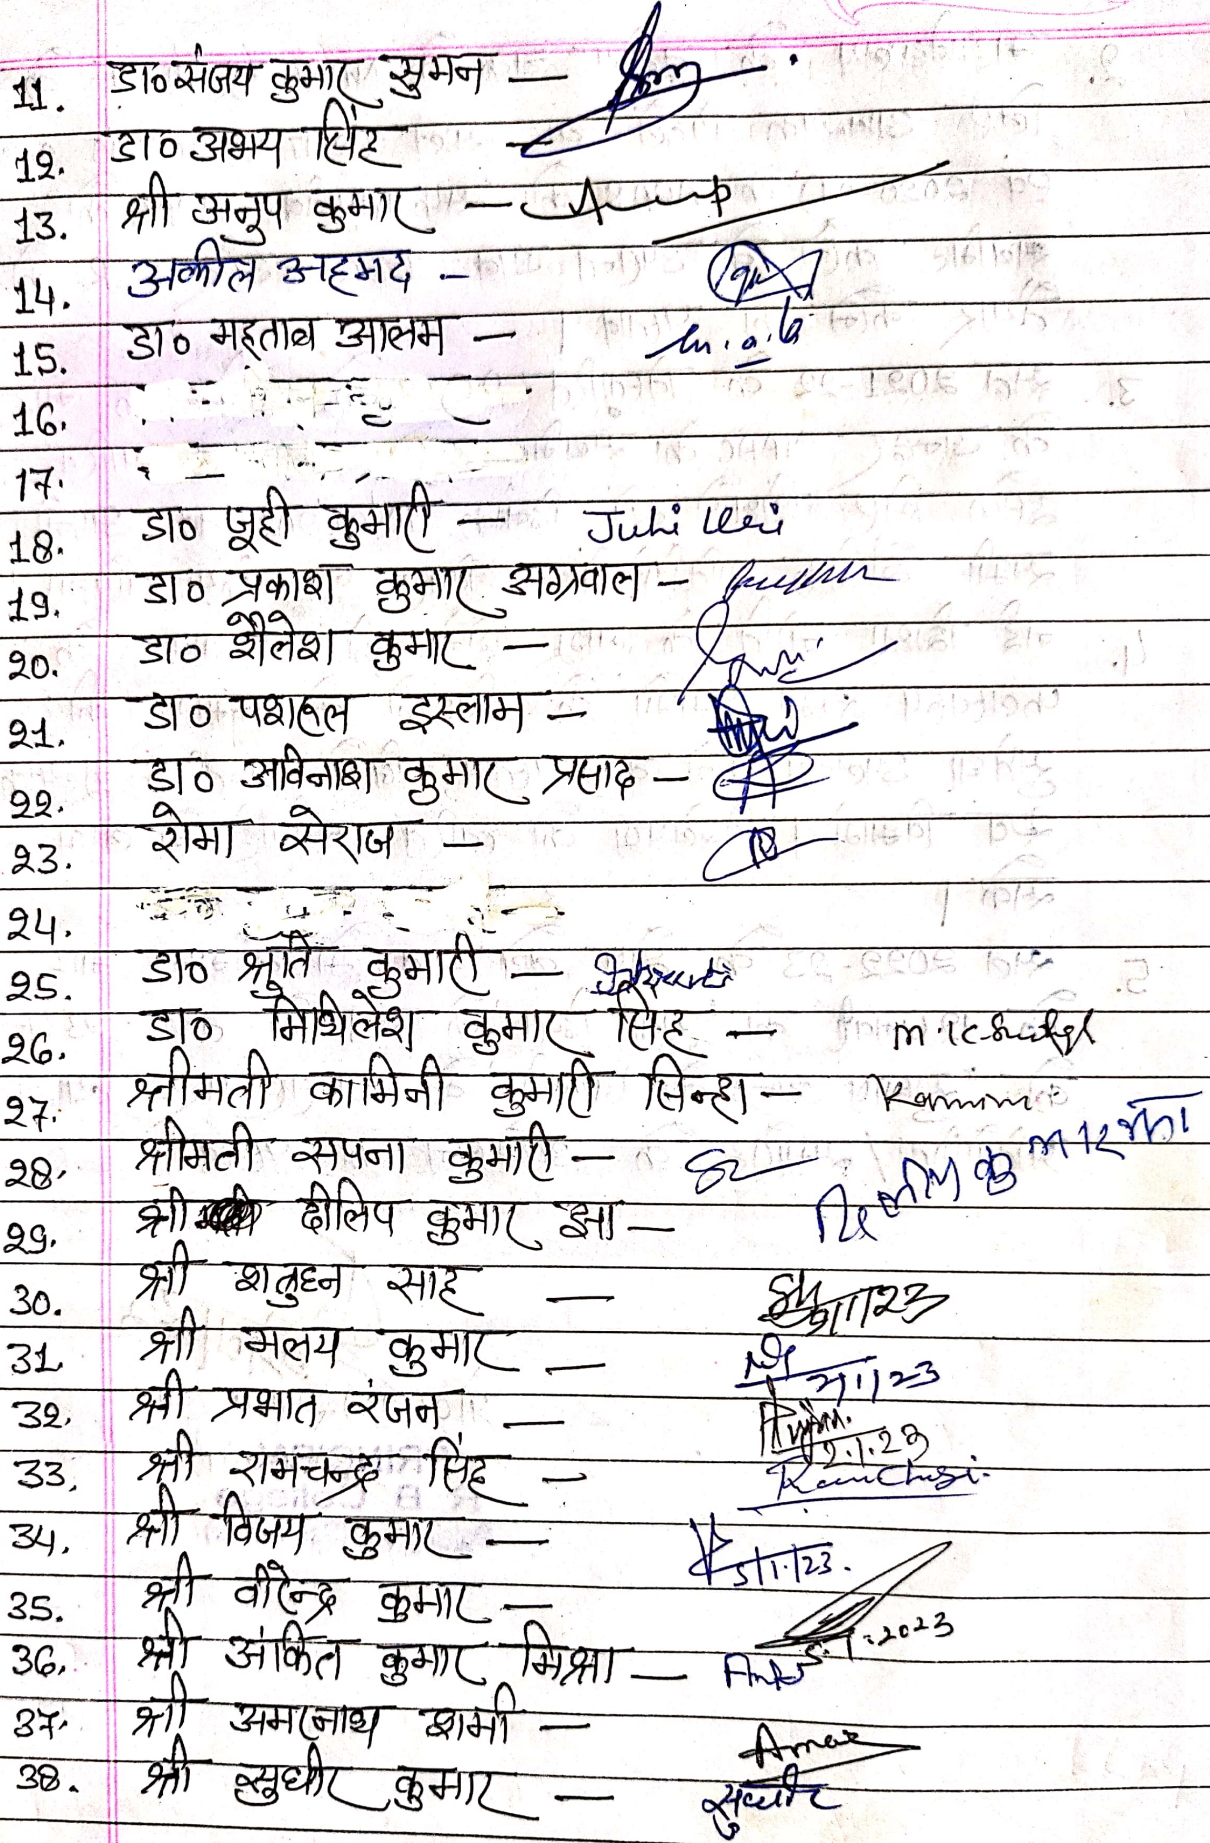 11. डा० संजय कुमार सुमन —
12. डा० अभय सिंह —
13. श्री अनुप कुमार — Anup
14. अकील अहमद —
15. डा० महताब आलम — m.a.
16.
17.
18. डा० जूही कुमारी — Juhi
19. डा० प्रकाश कुमार अग्रवाल —
20. डा० शैलेश कुमार —
21. डा० पशरूल इस्लाम —
22. डा० अविनाश कुमार प्रसाद —
23. रोमा सेराज —
24.
25. डा० श्रुति कुमारी —
26. डा० मिथिलेश कुमार सिंह — M.K. Singh
27. श्रीमती कामिनी कुमारी सिन्हा — Kamini
28. श्रीमती सपना कुमारी —
29. श्री दीलिप कुमार झा — दिलीप कुमार झा
30. श्री शत्रुघ्न साह —
31. श्री मलय कुमार —
32. श्री प्रभात रंजन — 2.1.23
33. श्री रामचन्द्र सिंह —
34. श्री विजय कुमार — 5/1/23.
35. श्री वीरेन्द्र कुमार — 5.1.2023
36. श्री अंकित कुमार मिश्रा —
37. श्री अमरनाथ शर्मा — Amar
38. श्री सुधीर कुमार — सुधीर